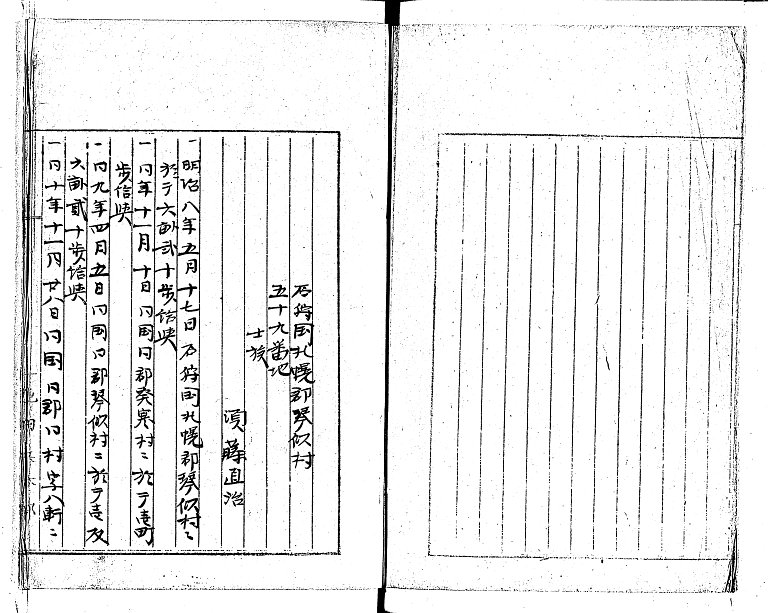 石狩国札幌郡琴似村
五十九番地
士族
須藤直治
一明治八年五月十七日石狩国札幌郡琴似村ニ
於テ六畝弐十歩給与
一同年十一月十日同国同郡発寒村ニ於テ壱町
歩給与
一同九年四月五日同国同郡琴似村ニ於テ壱反
六畝貳十歩給与
一同十年十一月廿八日同国同郡同村字八軒ニ